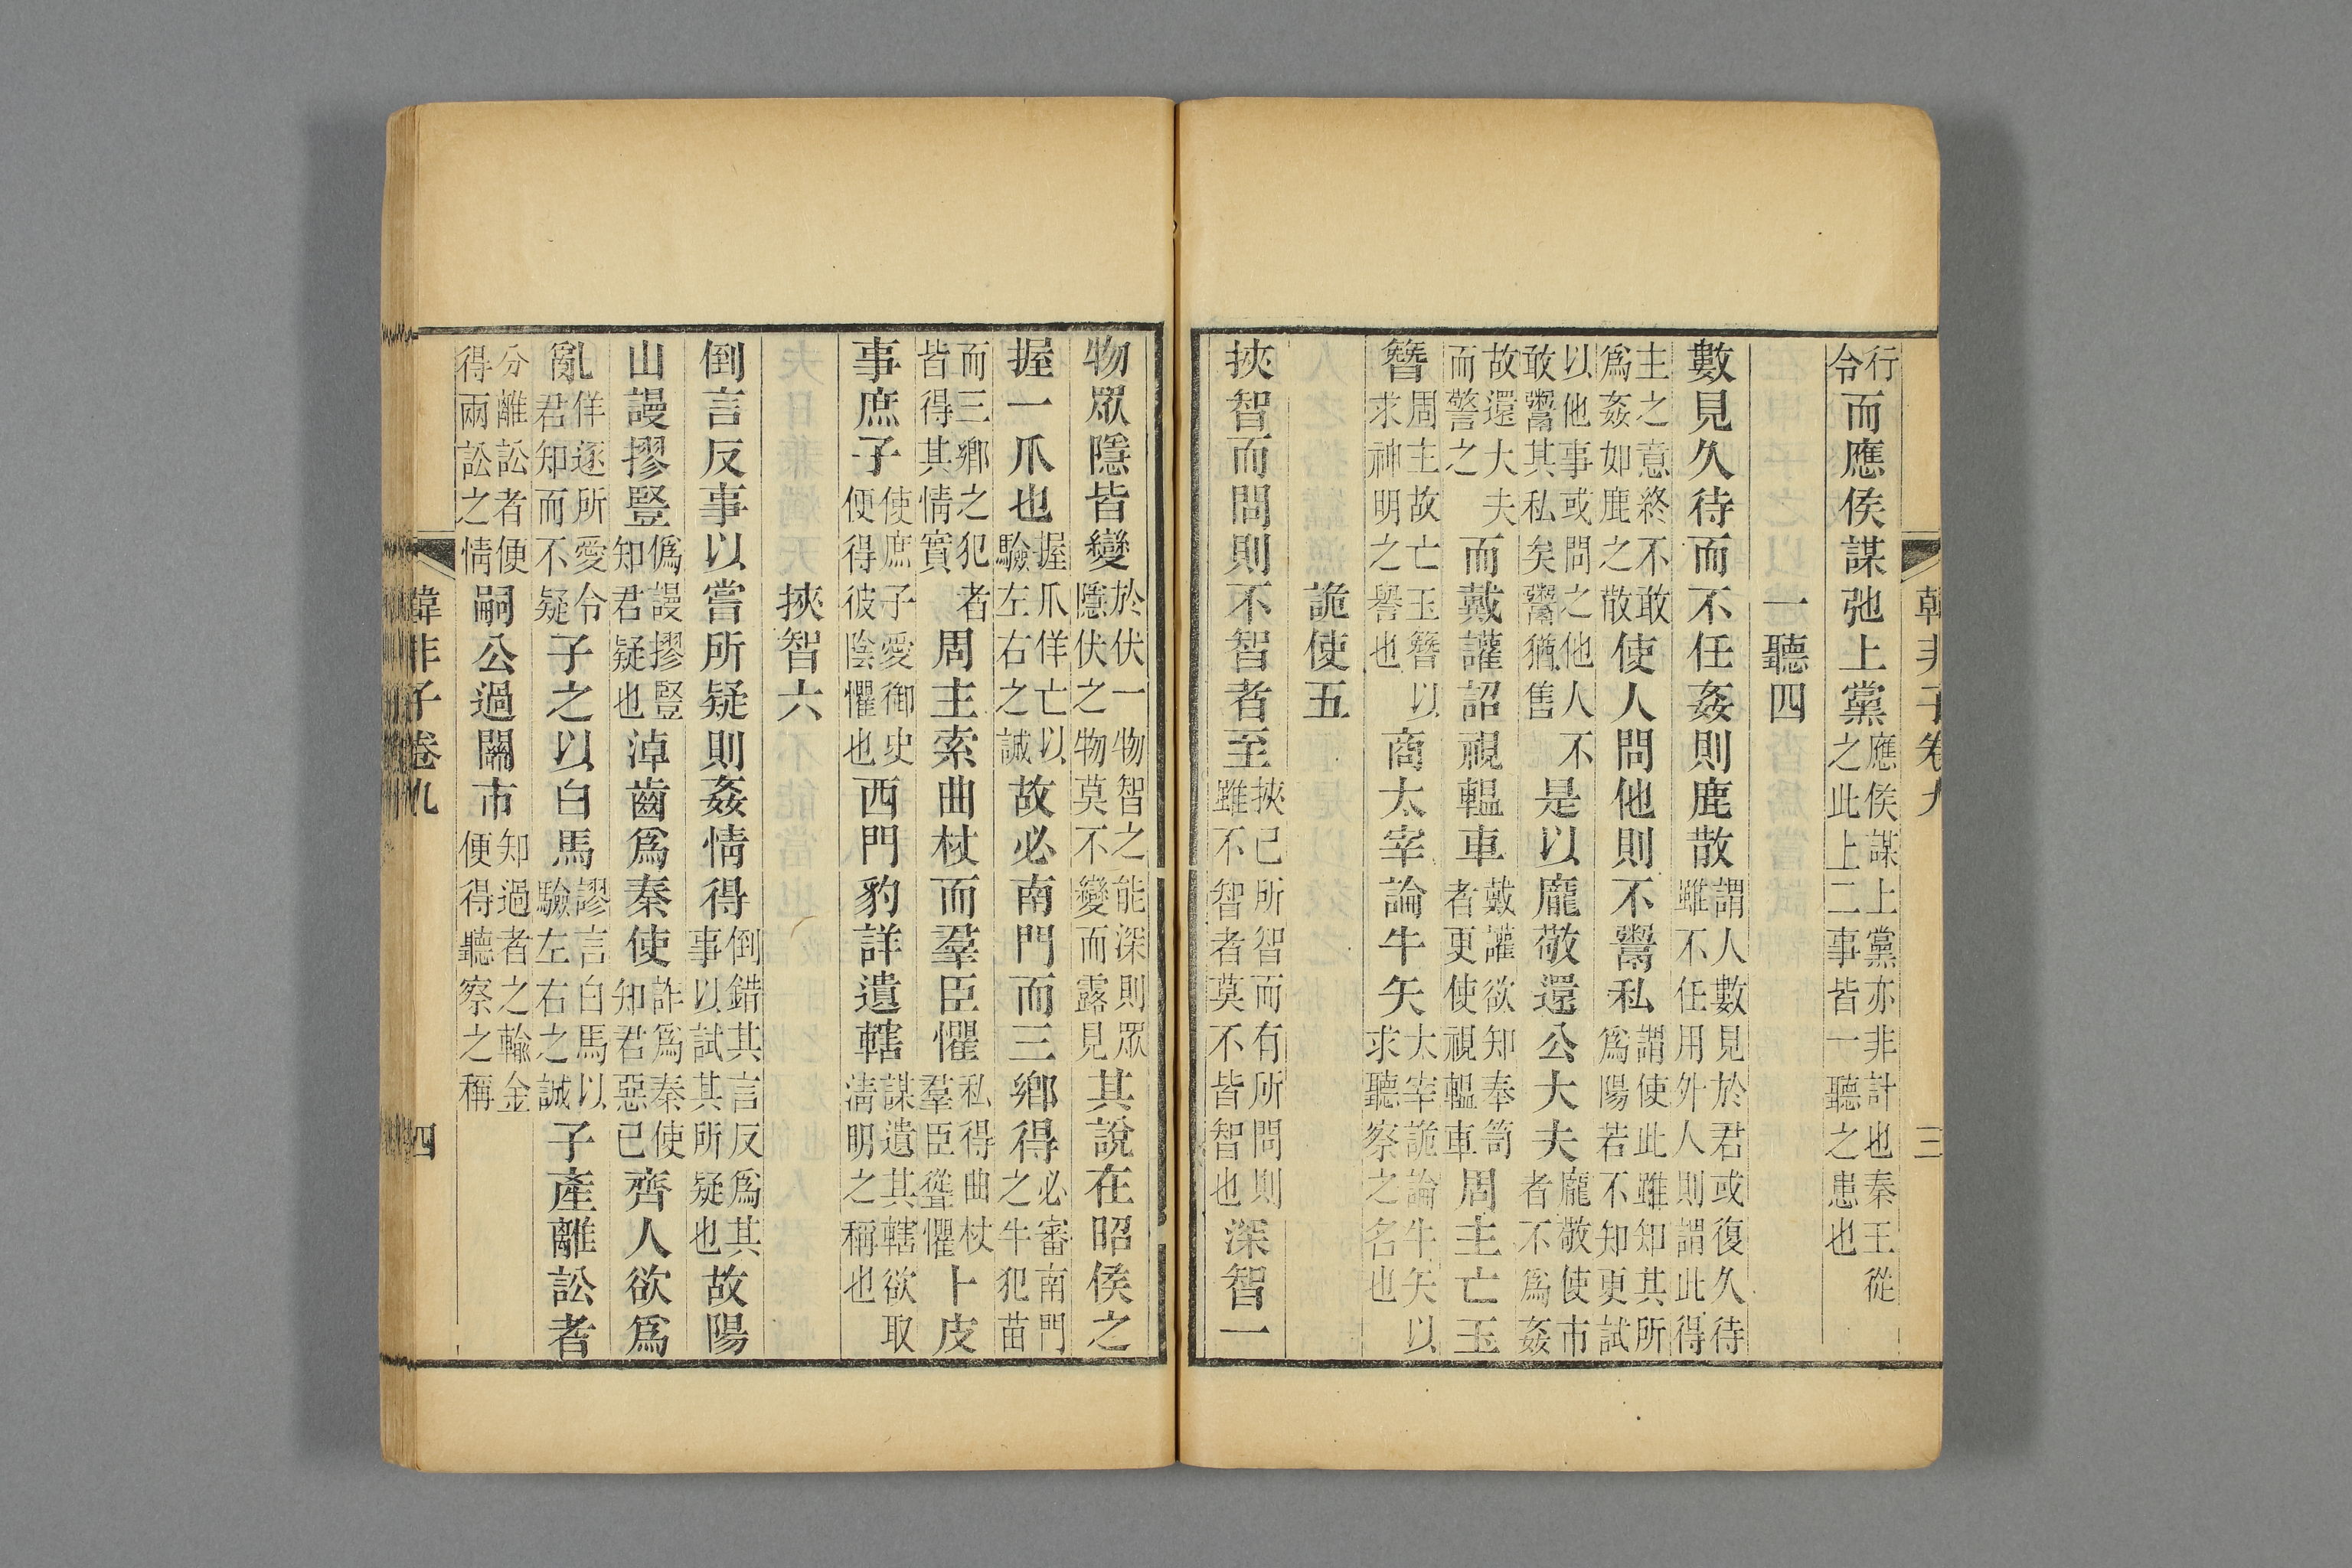 韓非子卷九 三
行令而應侯謀弛上黨應侯謀上黨亦非計也秦王從之此上二事皆一聽之患也
一聽四
數見久待而不任姦則鹿散謂人數見於君或復久待雖不任用外人則謂此得
主之意終不敢爲姦如鹿之散使人問他則不鬻私謂使此雖知其所爲陽若不知更試
以他事或問之他人不敢鬻其私矣鬻猶售是以龐敬還公大夫龐敬使市者不爲姦
故還大夫而警之而戴讙詔視轀車戴讙欲知奉笥者更使視轀車周主亡玉
簪周主故亡玉簪以求神明之譽也商太宰論牛矢太宰詭論牛矢以求聽察之名也
詭使五
挾智而問則不智者至挾己所智而有所問則雖不智者莫不皆智也深智一
物眾隱皆變於伏一物智之能深則眾隱伏之物莫不變而露見其說在昭侯之
握一爪也握爪佯亡以驗左右之誠故必南門而三鄉得必審南門之牛犯苗
而三鄉之犯者皆得其情實周主索曲杖而羣臣懼私得曲杖羣臣聳懼卜皮
事庶子使庶子愛御史便得彼陰懼也西門豹詳遺轄謀遺其轄欲取淸明之稱也
挾智六
倒言反事以嘗所疑則姦情得倒錯其言反爲其事以試其所疑也故陽
山謾摎豎僞謾摎豎知君疑也淖齒爲秦使詐爲秦使知君惡已齊人欲爲
亂佯逐所愛令君知而不疑子之以白馬謬言白馬以驗左右之誠子產離訟者
分離訟者便得兩訟之情嗣公過關市知過者之輸金便得聽察之稱
韓非子卷九 四